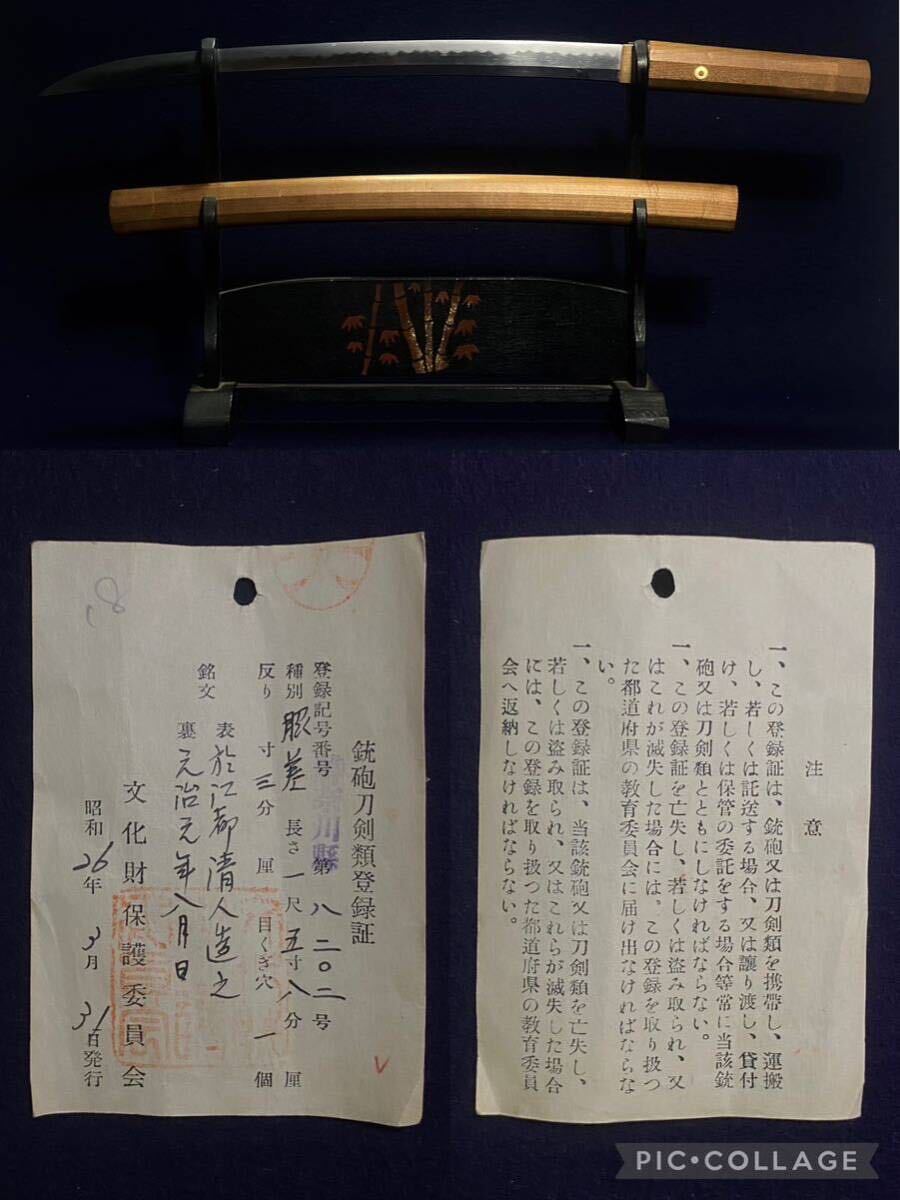 銃砲刀剣類登録証
登録記号番号 第八二〇二号
種別 脇差 長さ 一尺五寸八分 厘
反り 寸三分 厘 目くぎ穴 一個
銘文 表 於江都清人造之
裏 元治元年八月日
文化財保護委員会
昭和26年3月31日発行
注意
一、この登録証は、銃砲又は刀剣類を携帯し、運搬
し、若しくは託送する場合、又は譲り渡し、貸付
け、若しくは保管の委託をする場合等常に当該銃
砲又は刀剣類とともにしなければならない。
一、この登録証を亡失し、若しくは盗み取られ、又
はこれが滅失した場合には、この登録を取り扱つ
た都道府県の教育委員会に届け出なければならな
い。
一、この登録証は、当該銃砲又は刀剣類を亡失し、
若しくは盗み取られ、又はこれらが滅失した場合
には、この登録を取り扱つた都道府県の教育委員
会へ返納しなければならない。
PIC•COLLAGE